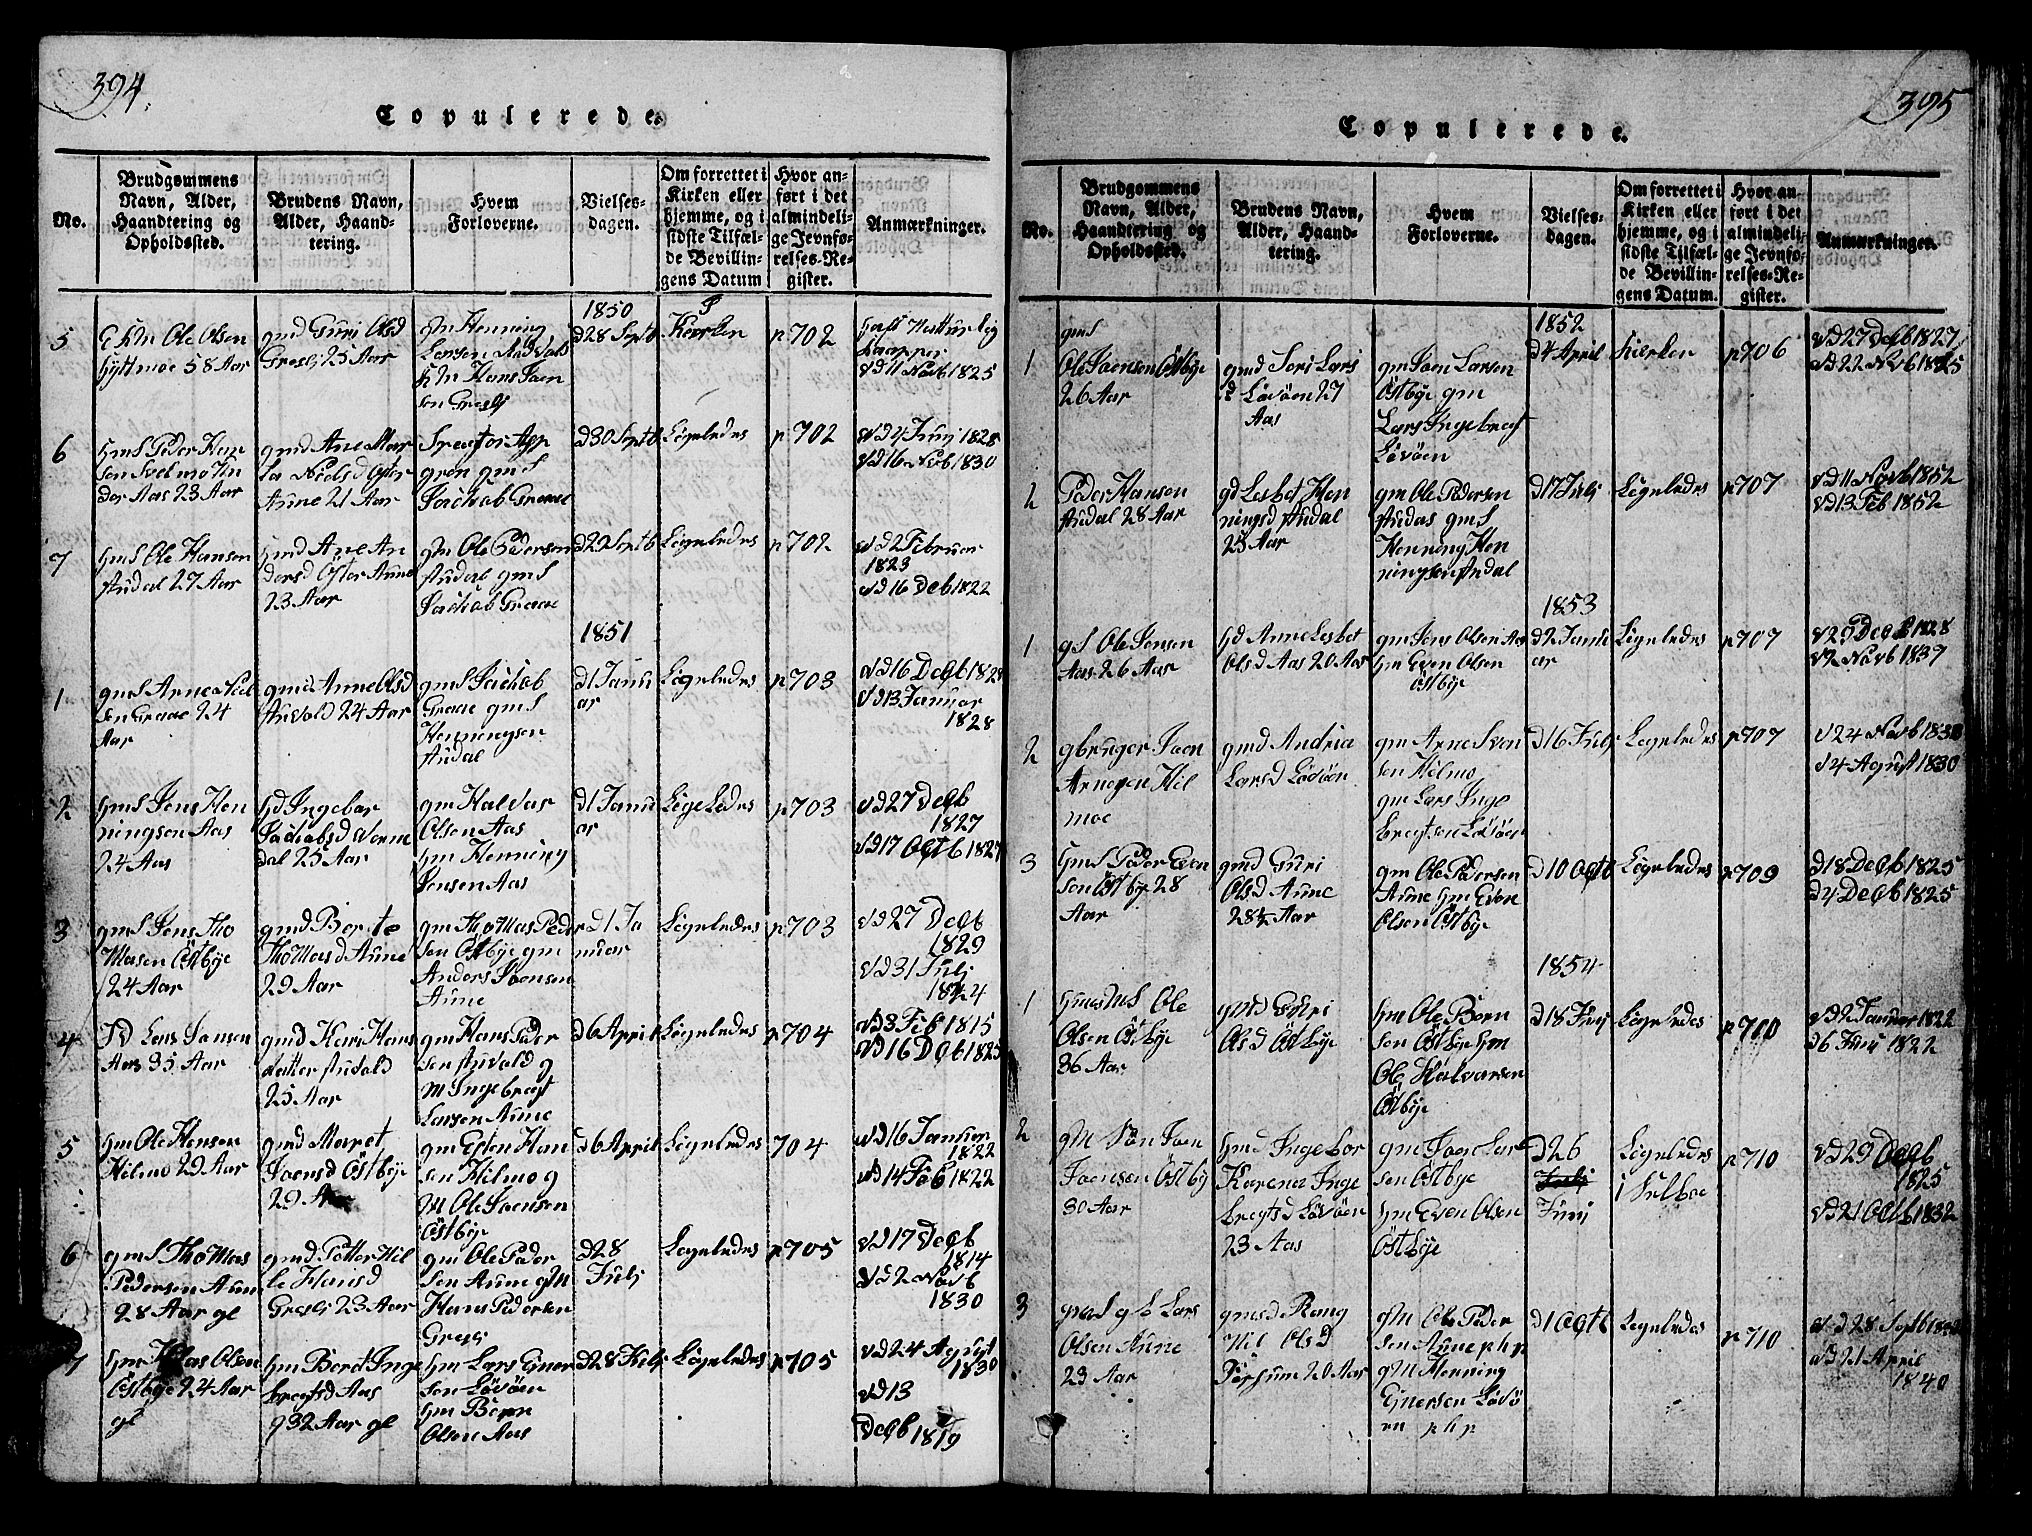 394.
Copulerede.
No.
Brudgommens
Navn, Alder,
Haandtering og
Opholdssted.
Brudens Navn,
Alder, Haand-
tering.
Hvem
Forloverne.
Vielses-
dagen.
Om forrettet i
Kirken eller
hjemme, og i
sidste Tilfæl-
de Bevillin-
gens Datum
Hvor an-
ført i det
almindeli-
ge Jevnfø-
relses-Re-
gister.
Anmærkninger.
1850
5
Ole Olsen
58 Aar
gmd Guri Olsd
Gresli 25 Aar
Hm Henning
Larsen
Hm Hans Joen
sen Gresli
d28 Septb
Kierken
p702
vd11 Novb 1825
6
HmS Peder Han
sen
Aas 23 Aar
gmd Ane Mar
Nielsd Øster
Aune 21 Aar
gmS
Jachab Graae
d30 Septb
Ligeledes
p702
vd4 Junj 1828
vd16 Novb 1830
7
HmS Ole Hansen
Audal 27 Aar
Hmd Ane An
dersd Öster Aune
23 Aar
gm Ole Pedersen
Audal gmS
Jachab Graae
d29 Septb
Ligeledes
p702
vd2 Februar
1823
vd16 Decb 1822
1851
1
gmS Arne
sen Graae 24
Aar
gmd Anne Olsd
Auvold 24 Aar
gmS Jachab
Graae gmS
Henningsen
Audal
d1 Janu
ar
Ligeledes
p703
vd16 Decb
vd13 Januar
1828
2
HmS Jens Hen
ningsen Aas
24 Aas
Hd Ingebor
Jachabsd
dal 25 Aar
gm Halvar
Olsen Aas
Hm Henning
Jensen Aas
d1 Janu
ar
Lige Ledes
p703
vd27 Decb
1827
vd17 Octb 1827
3
gmS Jens Tho
Masen Östbye
24 Aar
gmd Borte
ThoMasd Aune
29 Aar
gm ThoMas Peder
sen Östbye gm
Anders
Aune
d1 Ja
nuar
Ligeledes
p703
vd27 Decb
1829
vd31 Julj
4
Lars Jansen
Aas 35 Aar
gmd Keri Hans
datter Auvold
25 Aar
gm Hans Peder
sen Auvold g
M Ingebragt
Larsen Aune
d6 April
Ligeledes
p704
vd3 Feb 1815
vd16 Decb 1825
5
Hm Ole Hansen
Hilmo 29 Aar
gmd Maret
Joensd Östbye
29 Aar
gm Esten Han
sen Hilmo g
M Ole Joensen
Östbye
d6 April
Ligeledes
704
vd16 Januar
1822
vd14 Feb 1822
6
gmS ThoMas
Pedersen Aune
28 Aar gl
gmd Petter Nil
le Hansd
Gresli 23 Aar
gm Ole Peder
sen Aune gM
Hans Pedersen
Gresli
d28
Julj
Ligeledes
p705
vd17 Decb
1814
vd2 Novb
1830
7
Hm Olsen
Östbye 24 Aar
gl
Hm Beret Inge
bregtsd Aas
g32 Aar gl
Hm Lars Ener
sen Lövöen
Hm Börn
Olsen Aas
d28 Julj
Ligeledes
p705
vd24 Agust
1830
vd13
Decb 1819
395
Copulerede.
No.
Brudgommens
Navn, Alder,
Haandtering og
Opholdssted.
Brudens Navn,
Alder, Haand-
tering.
Hvem
Forloverne.
Vielses-
dagen.
Om forrettet i
Kirken eller
hjemme, og i
sidste Tilfæl-
de Bevillin-
gens Datum.
Hvor an-
ført i det
almindeli-
ge Jevnfø-
relses-Re-
gister.
Anmærkninger.
1852
1
gmS
Ole Joensen Östbye
26 Aar
gmd Sori Lars
d Lövöen 27
Aas
gm Joen Larsen
Östbye gm
Lars Ingebragt
Lövöen
d4 April
Kierken
p706
vd27 Decb 1827
vd22 Novb
2
Peder Hansen
Audal 28 Aar
gd Lesbet Hen
ningsd Audal
25 Aar
gm Ole Pedersen
Audas gmS
Henning Hen
ningsen Audal
d17 Julj
Ligeledes
p707
vd11 Novb 1852
vd13 Feb 1852
1853
1
gS Ole Jensen
Aas 26 Aar
Hd Anne Lesbet
Olsd Aas 20 Aar
gm Jens Olsen Aas
Hm Even Olsen
Östbye
d2 Janu
ar
Ligeledes
p707
Decb 1828
vd2 Novb 1837
2
gbruger Joen
Arnesen Hil
moe
gmd Andria
Larsd Lövöen
gm Arne Sven
sen Hilmo
gm Lars Inge
bregtsen Lövöen
d16 Julj
Ligeledes
p707
vd24 Novb
vd4 Agust 1830
3
HmS Peder Even
sen Östbye 28
Aar
gmd Guri
Olsd Aune
28½ Aar
gm Ole Pedersen
Aune Hm Even
Olsen Östbye
d10 Octb
Ligeledes
p709
d18 Decb 1825
d4 Decb 1825
1854
1
Ole
Olsen Östbye
36 Aar
gMD
Olsd Östbye
Hm Ole Börn
sen Östbye Hm
Ole Halvarsen
Östbye
d18 Junj
Ligeledes
p700
vd2 Januar 1822
d6 Junj 1822
2
gM Sön Joen
Joensen Östby
30 Aar
Hmd Ingebor
Karena Inge
bregtsd Lövöen
23 Aas
gm Joen Lar
sen Östbye
Hm Even Olsen
Östbye
d26
Julj
Junj
Ligeledes
i Selboe
p710
vd29 Decb
1825
vd21 Octb 1832
3
Lars
Olsen Aune
23 Aar
gmsd Rang
Nil Olsd
20 Aar
gM Ole Peder
sen Aune php
gM Henning
Enersen Lövö
en php
d1 Octb
Ligeledes
p710
vd28 Septb
vd21 April
1840